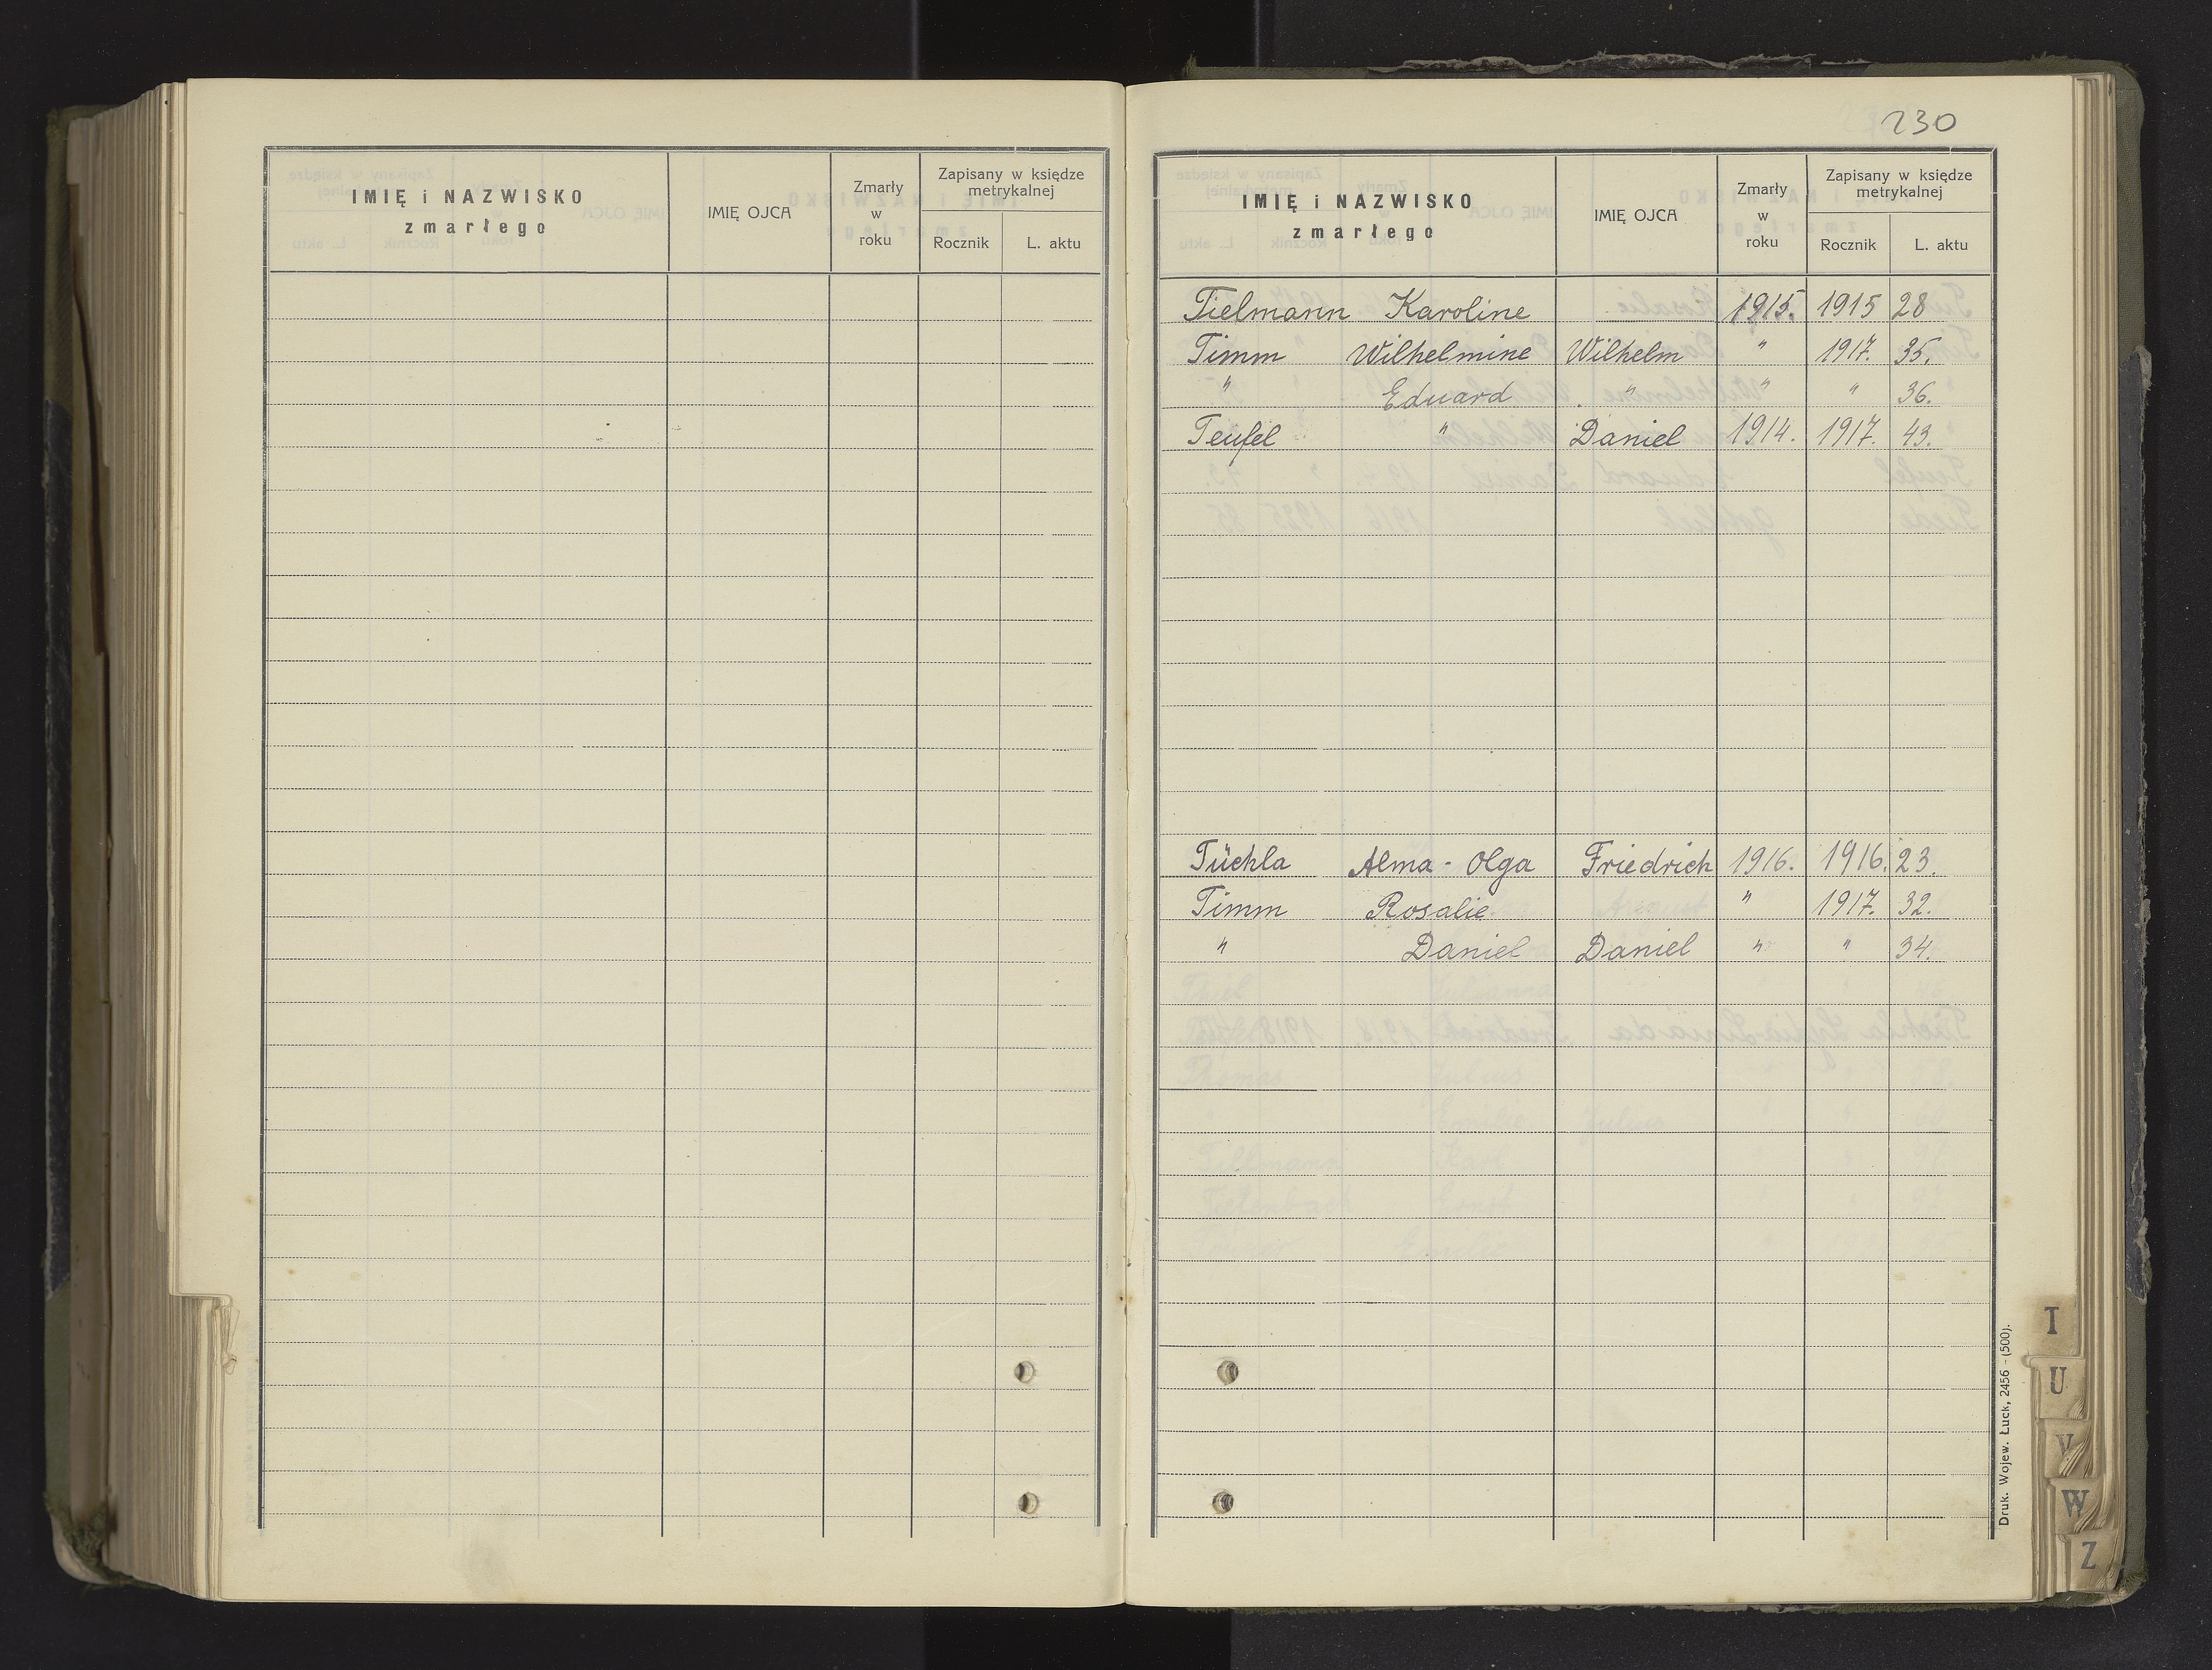 IMIĘ i NAZWISKO
zmarłego
IMIĘ OJCA
Zmarły
w
roku
Zapisany w księdze
metrykalnej
Rocznik L. aktu
230
IMIĘ i NAZWISKO
zmarłego
IMIĘ OJCA
Zmarły
w
roku
Zapisany w księdze
metrykalnej
Rocznik L. aktu
Tielmann Karoline 1915. 1915 28
Timm Wilhelmine Wilhelm " 1917. 35.
" Eduard " " " 36.
Teufel " Daniel 1914. 1917. 43.
Tüchla Alma - Olga Friedrich 1916. 1916. 23.
Timm Rosalie " 1917. 32.
" Daniel Daniel " " 34.
Druk. Wojew. Łuck, 2456 - (500).
T
U
V
W
Z